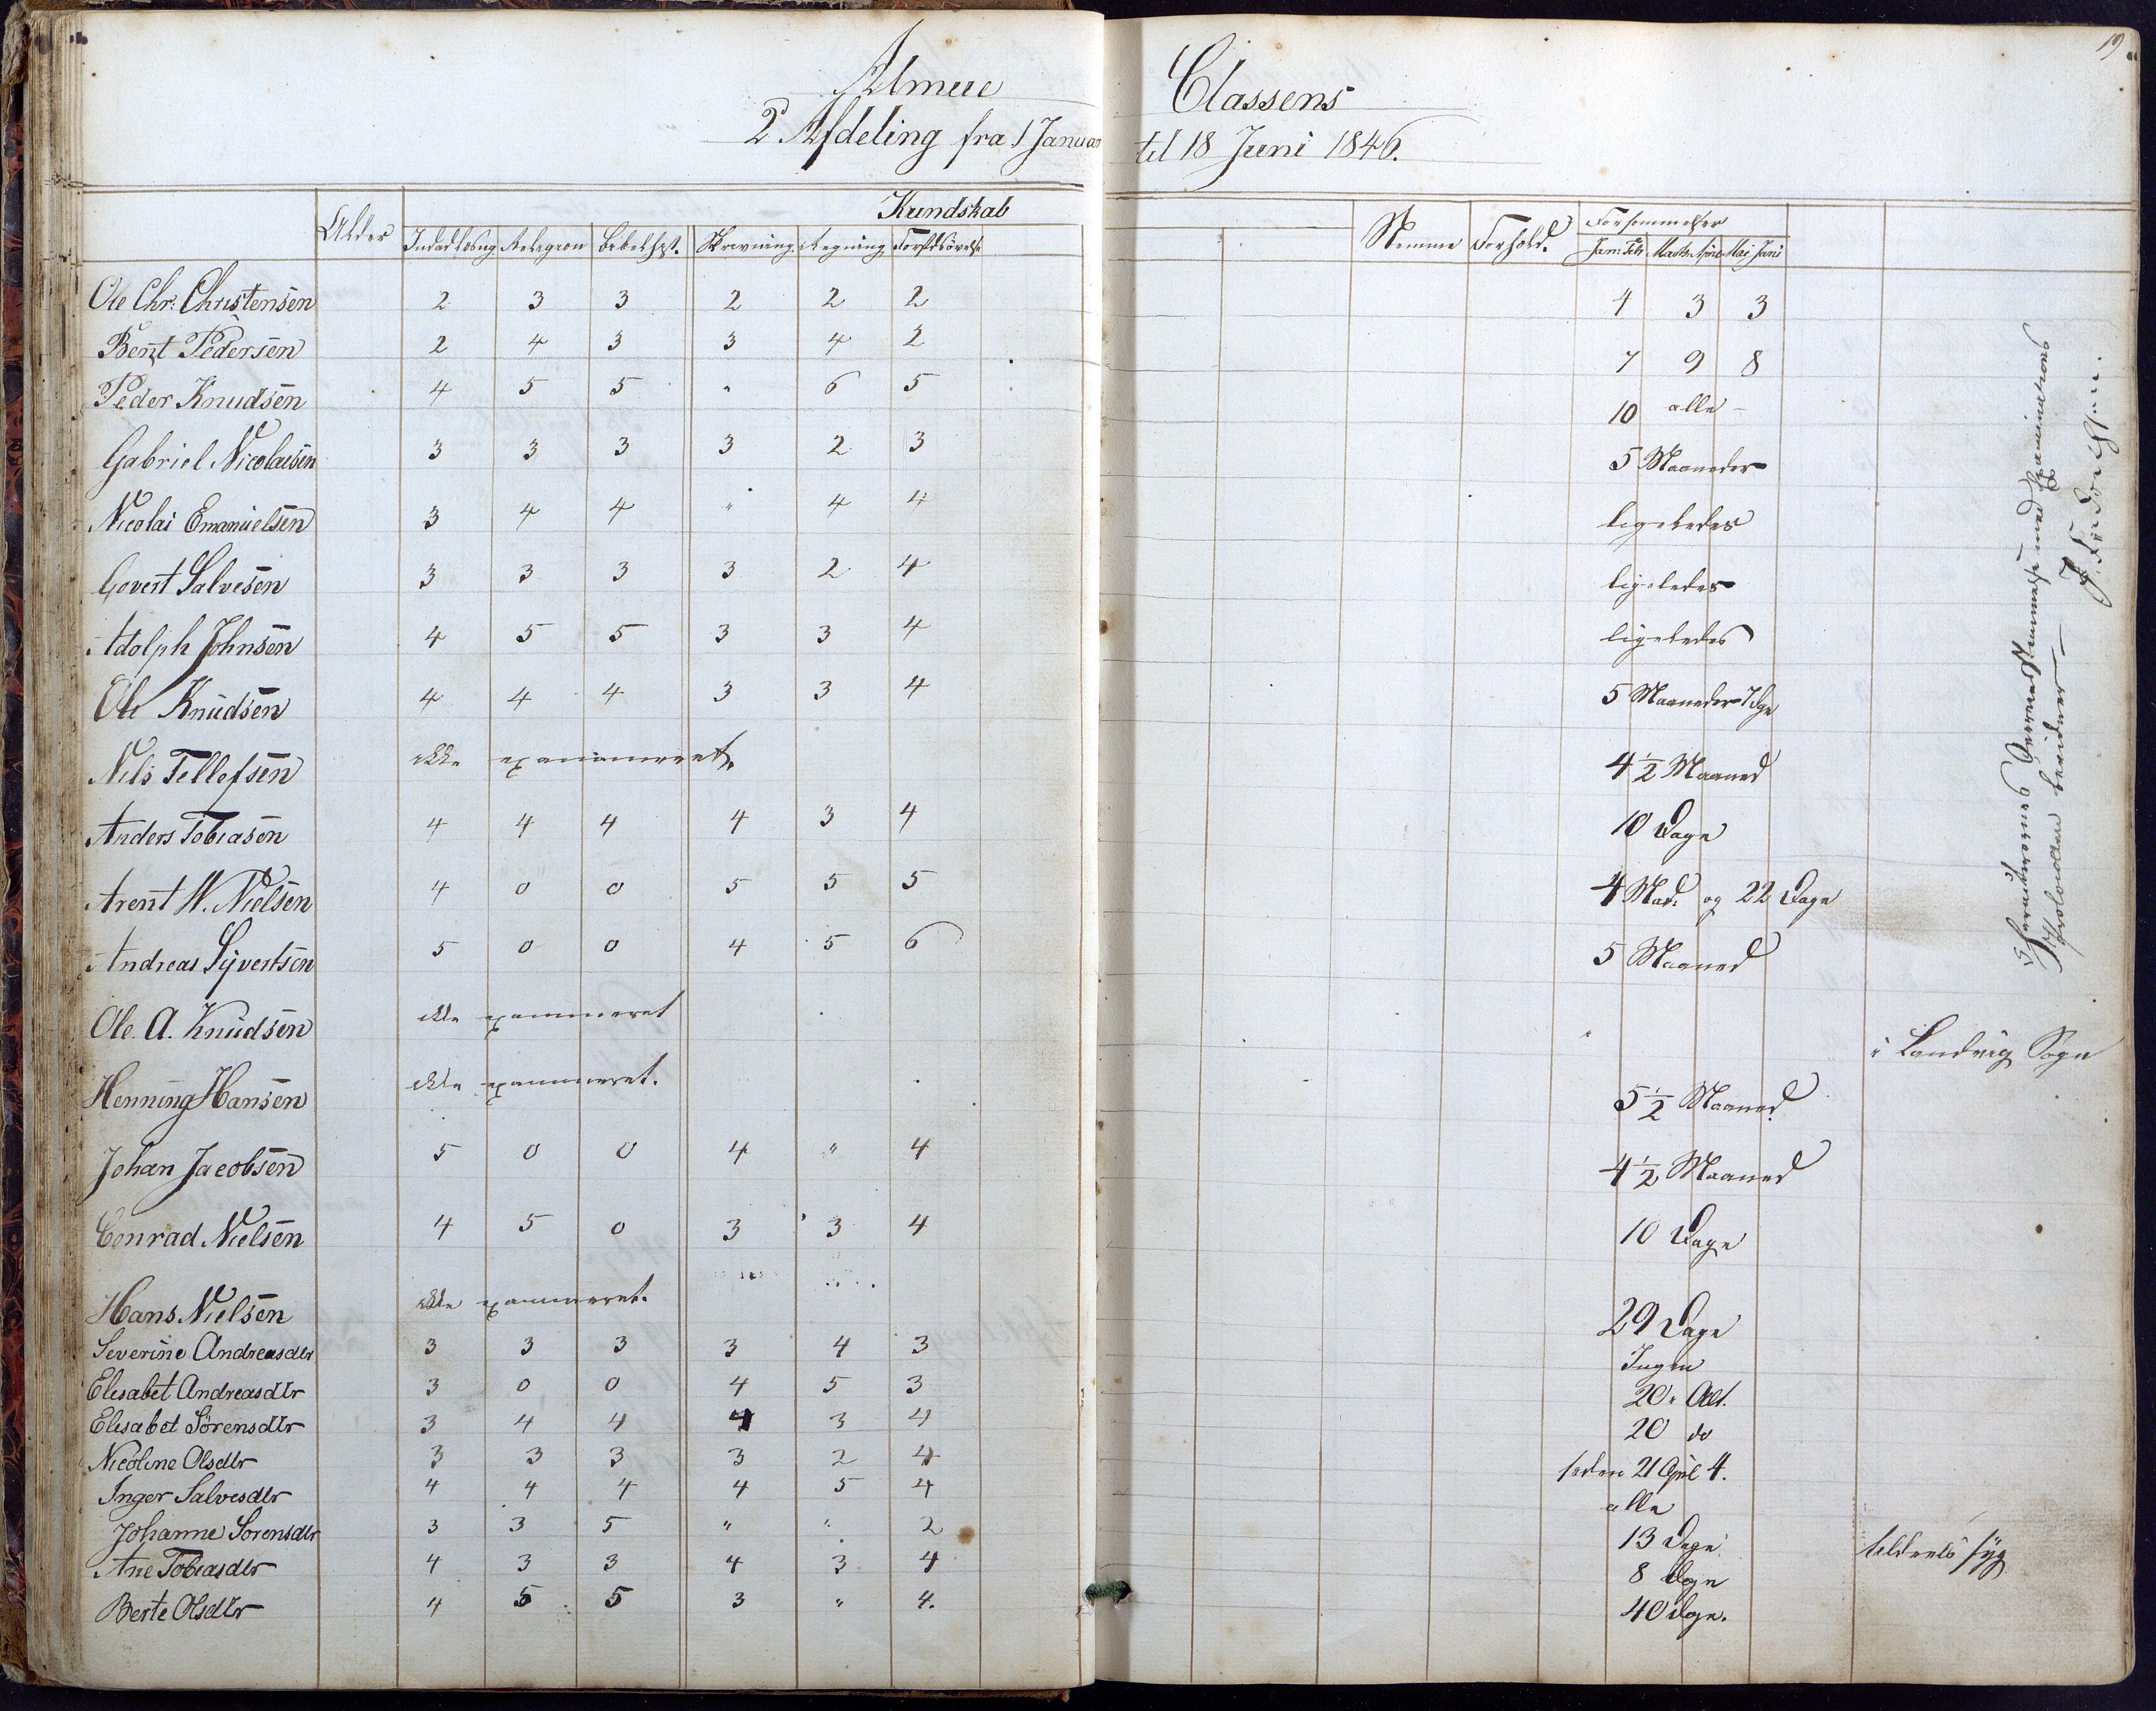 19
Almue Classens
2 Afdeling fra 1 Januar til 18 Juni 1846.
Kundskab
Alder Indadlæsng Religion bibelhist. Skrivning. Regning Forstdsövels. Stemme Forhold. Forsömmelser
Jan: Feb Marts April Mai Juni
Ole Chr. Christensen 2 3 3 2 2 2 4 3 3
Bent Pedersen 2 4 3 3 4 2 7 9 8
Peder Knudsen 4 5 5 " 6 5 10 alle -
Gabriel Nicolaisen 3 3 3 3 2 3 5 Maaneder
Nicolai Emanuelsen 3 4 4 " 4 4 ligeledes
Govert Salvesen 3 3 3 3 2 4 ligeledes
Adolph Johnsen 4 5 5 3 3 4 ligeledes
Ole Knudsen 4 4 4 3 3 4 5 Maaneder 7 Dge
Nils Tellefsen ikke examineret. 4 1/2 Maaned
Anders Tobiasen 4 4 4 4 3 4 10 Dage
Arent W. Nielsen 4 0 0 5 5 5 4 Mad. og 22 Dage
Andreas Syvertsen 5 0 0 4 5 6 5 Maaned
Ole A. Knudsen ikke examineret " i Landvig Sogn
Henning Hansen ikke examineret. 5 1/2 Maaned
Johan Jacobsen 5 0 0 4 " 4 4 1/2 Maaned
Conrad Nielsen 4 5 0 3 3 4 10 Dage
Hans Nielsen ikke examineret. 29 Dage
Severine Andreasdtr 3 3 3 3 4 3 Ingen
Elisabet Andreasdtr 3 0 0 4 5 3 20 i Alt.
Elisabet Sörensdtr 3 4 4 4 3 4 20 do
Nicoline Olsdtr 3 3 3 3 2 4 siden 21 April 4.
Inger Salvesdtr 4 4 4 4 5 4 alle
Johanne Sorensdtr 3 3 5 " " 2 13 Dage tildeels syg
Ane Tobiasdtr 4 3 3 4 3 4 8 Dage
Berte Olsdtr 4 5 5 3 " 4. 40 Dage.
Karakterernes Overeensstemmelse med Examinations
Protocollen bevidner —